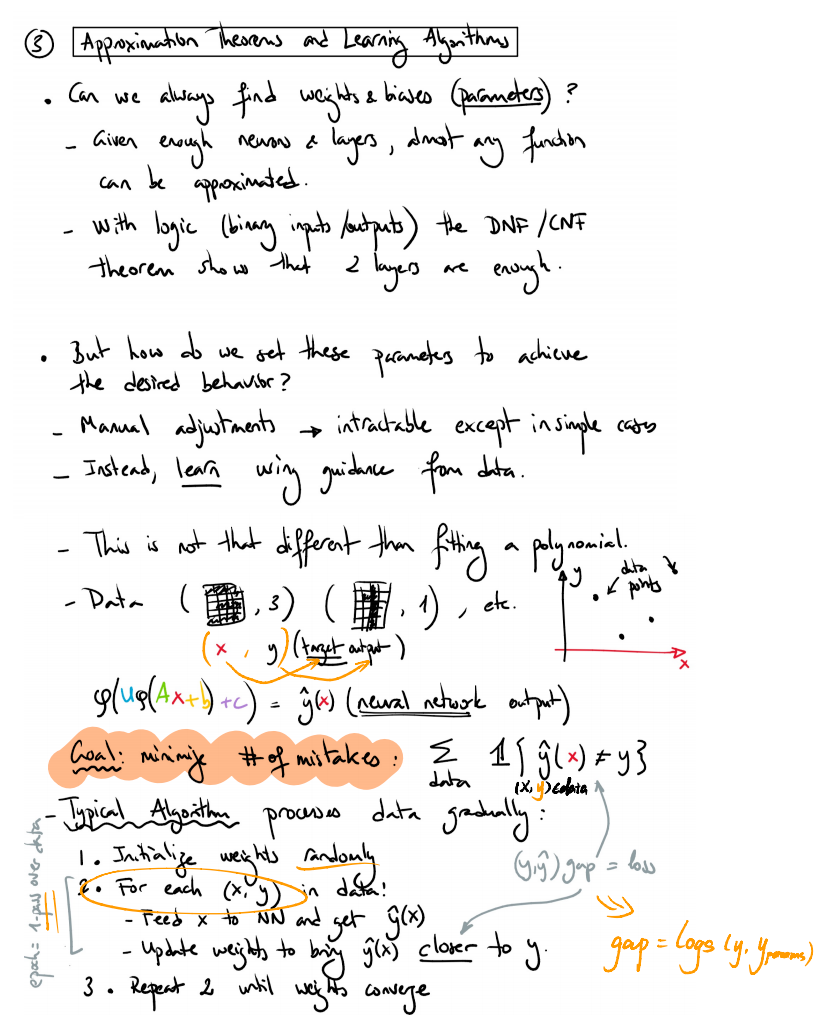 ③ Approximation Theorems and Learning Algorithms
• Can we always find weights & biases (parameters)?
- Given enough neurons & layers, almost any function
can be approximated.
- With logic (binary inputs/outputs) the DNF/CNF
theorem show that 2 layers are enough.
• But how do we set these parameters to achieve
the desired behavior?
- Manual adjustments → intractable except in simple cases
- Instead, learn using guidance from data.
- This is not that different than fitting a polynomial.
- Data ( , 3) ( , 1), etc.
y data points
x
(x, y) (target output)
φ(Uφ(Ax+b)+c) = ŷ(x) (neural network output)
Goal: minimize # of mistakes: Σ 𝟙{ŷ(x) ≠ y}
data (x,y)∈data
- Typical Algorithm processes data gradually:
1. Initialize weights randomly
(y,ŷ) gap = loss
2. For each (x, y) in data:
- Feed x to NN and get ŷ(x)
- Update weights to bring ŷ(x) closer to y.
gap = logs (y, y params)
3. Repeat 2 until weights converge
epoch = 1-pass over data